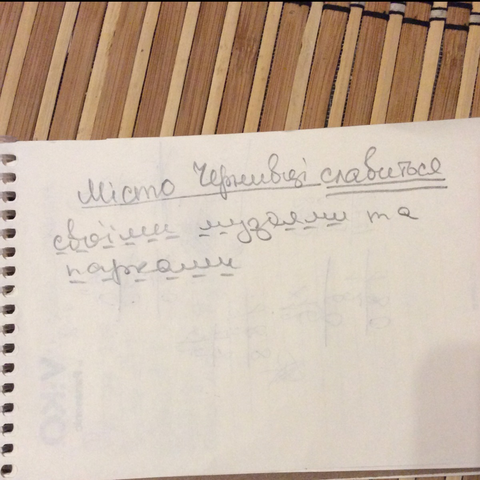 Місто Чернивці славиться
своїми музеями та
парками